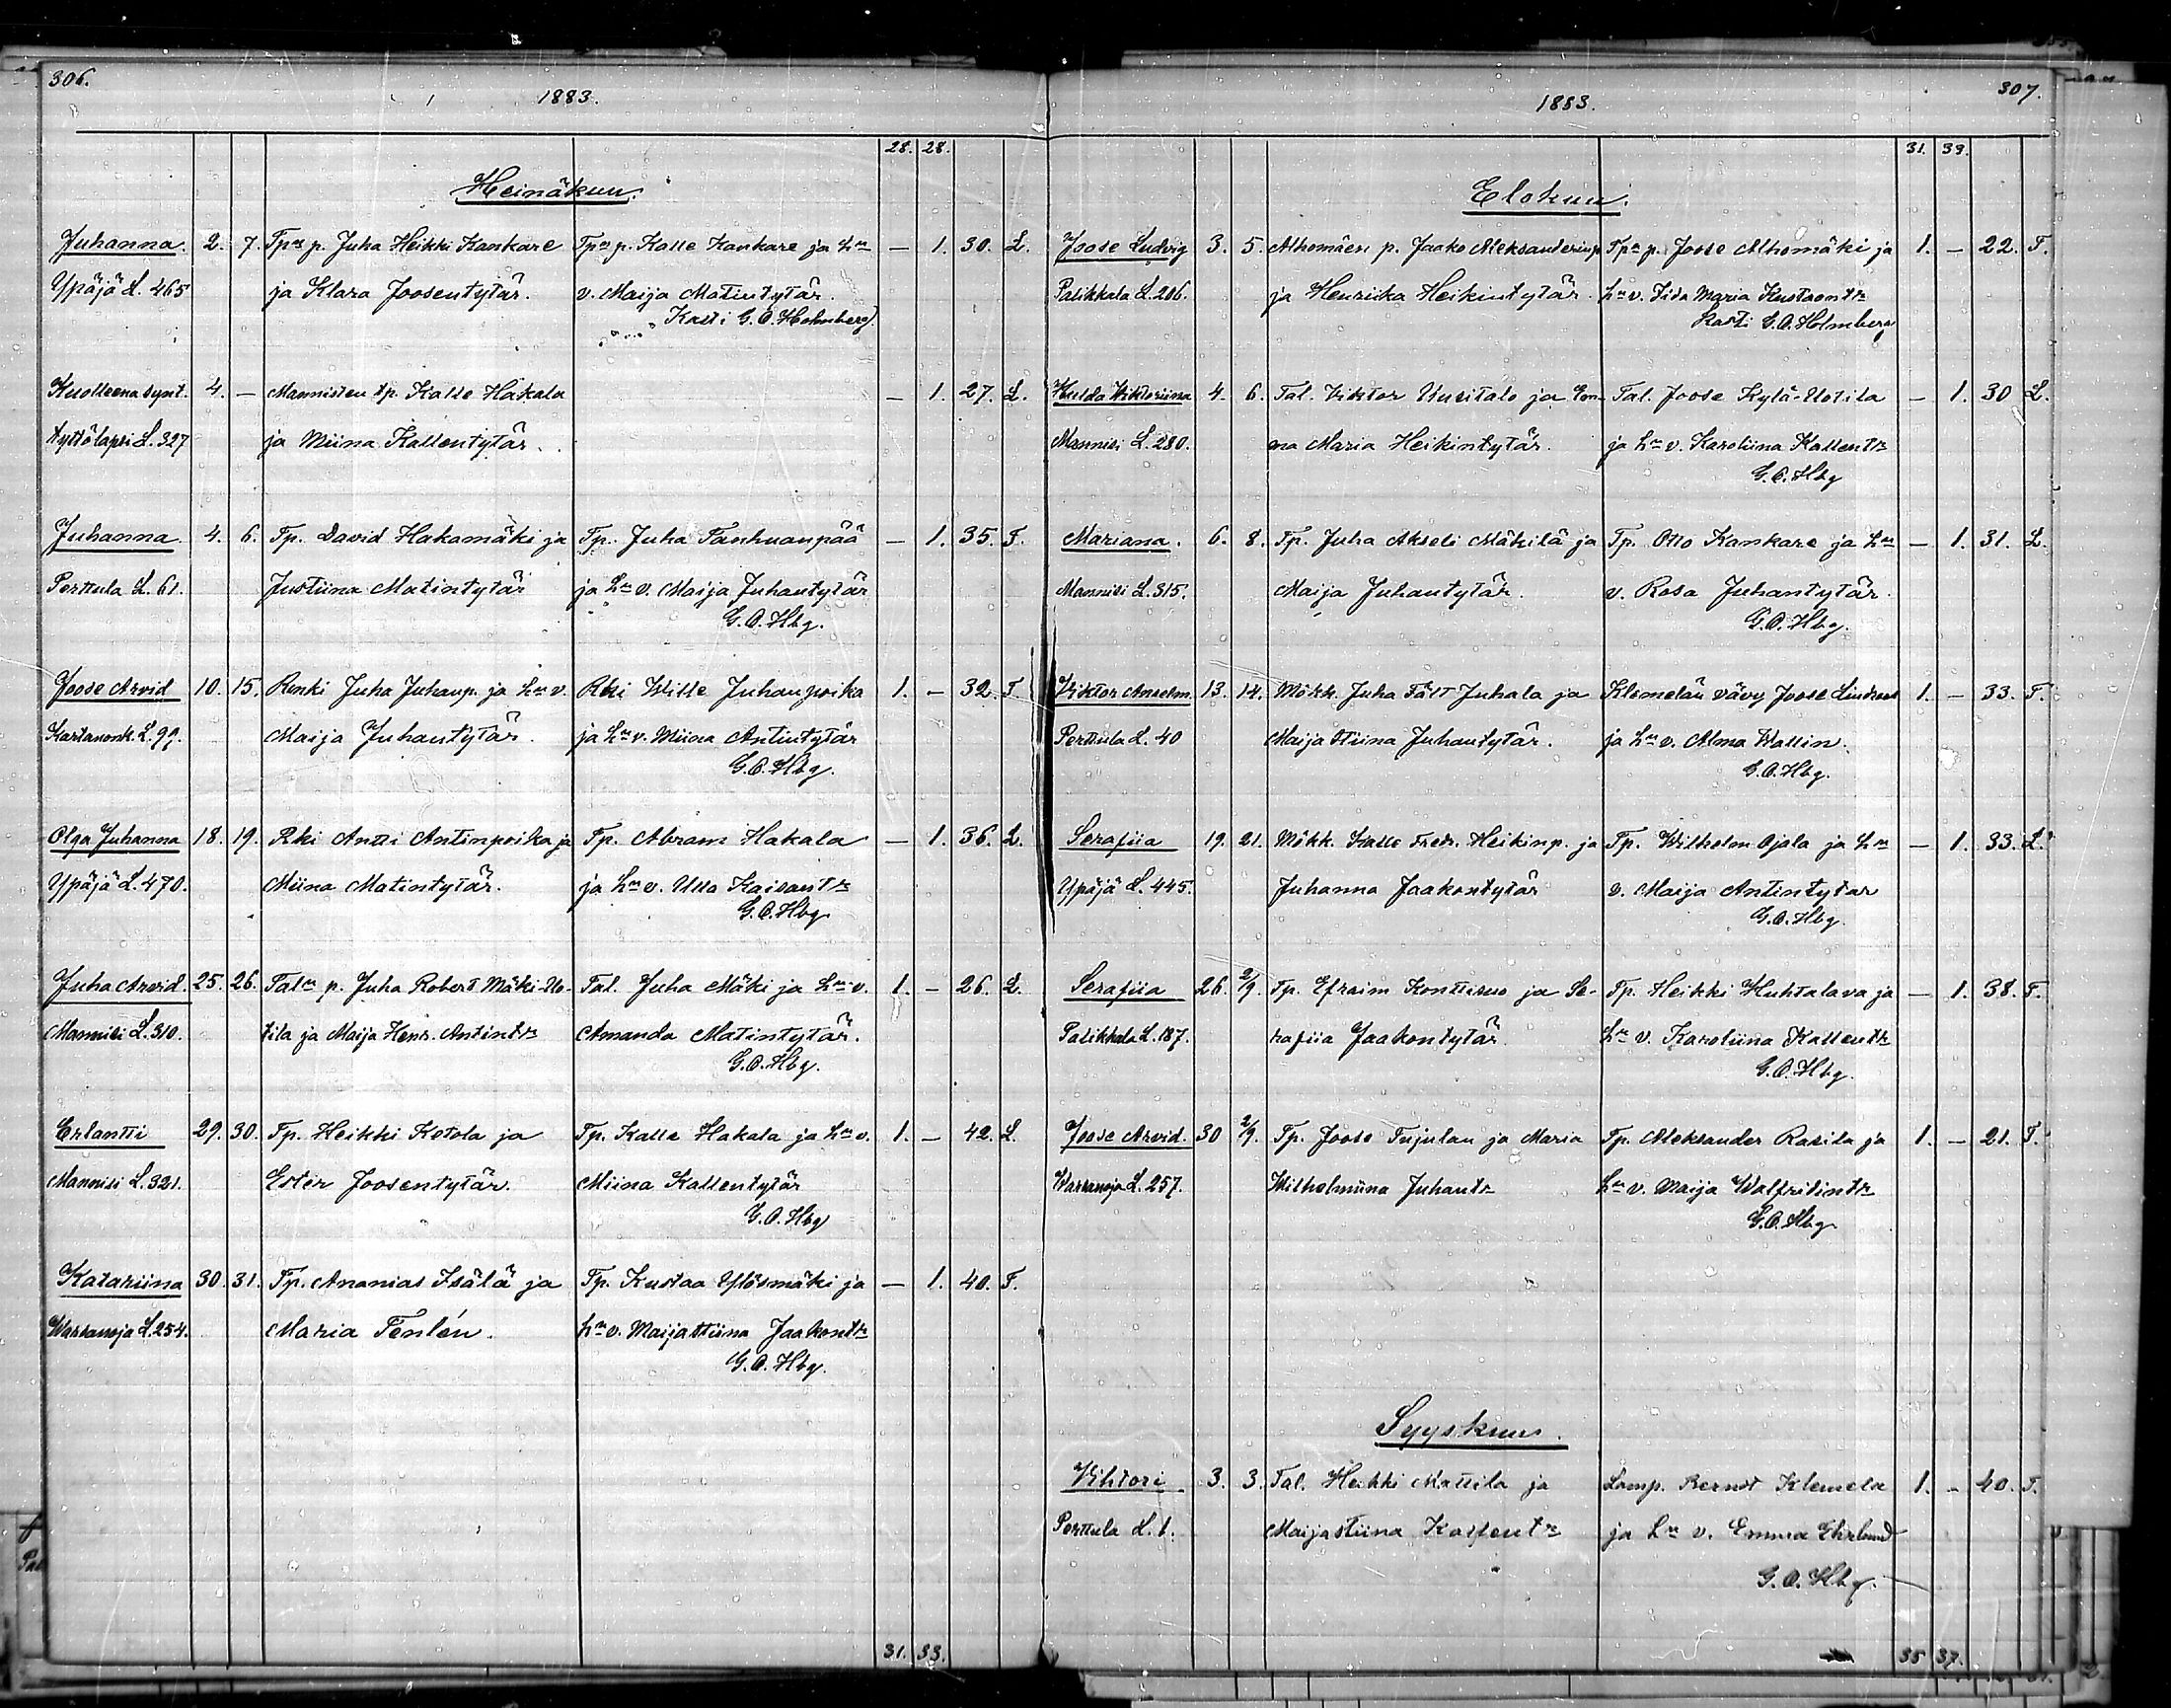 306.
1883.
28. 28.
Heinäkuu.
Juhanna. 2. 7. Tpn p. Juha Heikki Kankare Tpn p. Kalle Kankare ja hn — 1. 30. L.
Ypäjä L. 465 ja Klara Joosentytär. v. Maija Matintytär.
Kasti G. O. Holmberg.
Kuolleena synt. 4. — Mannisten tp. Kalle Hakala — 1. 27. L.
tyttölapsi L. 327 ja Miina Kallentytär.
Juhanna. 4. 6. Tp. David Hakamäki ja Tp. Juha Tanhuanpää — 1. 35. T.
Perttula L. 61. Justiina Matintytär ja hn v. Maija Juhantytär
G. O. Hbg.
Joose Arvid 10. 15. Renki Juha Juhanp. ja hn v. Rki Wille Juhanpoika 1. — 32. T
Kartanonk. L. 99. Maija Juhantytär. ja hn v. Miina Antintytär
G. O. Hbg.
Olga Juhanna 18. 19. Rki Antti Antinpoika ja Tp. Abram Hakala — 1. 36. L.
Ypäjä L. 470. Miina Matintytär. ja hn v. Ulla Kaisantr
G. O. Hbg
Juha Arvid. 25. 26. Taln p. Juha Robert Mäki-Uo- Tal. Juha Mäki ja hn v. 1. — 26. L.
Mannisi L. 310. tila ja Maija Henr. Antintr Amanda Matintytär.
G. O. Hbg.
Erlantti 29. 30. Tp. Heikki Kotola ja Tp. Kalle Hakala ja hn v. 1. — 42. L.
Mannisi L. 321. Ester Joosentytär. Miina Kallentytär
G. O. Hbg
Katariina 30. 31. Tp. Ananias Isälä ja Tp. Kustaa Ylösmäki ja — 1. 40. T.
Warsanoja L. 254. Maria Tenlén. hn v. Maijastiina Jaakontr
G. O. Hbg.
31. 33.
307.
1883.
31. 33.
Elokuu.
Joose Ludvig 3. 5. Alhomäen p. Jaako Aleksanterinp Tpn p. Joose Alhomäki ja 1. — 22. T.
Palikkala L. 206. ja Henriika Heikintytär. hn v. Iida Maria Kustaantr
Kasti G. O. Holmberg
Hulda Wiktoriina 4. 6. Tal. Viktor Uusitalo ja Em- Tal. Joose Kylä-Uotila — 1. 30 L.
Mannisi L. 280. ma Maria Heikintytär. ja hn v. Karoliina Kallentr
G. O. Hbg
Mariana. 6. 8. Tp. Juha Akseli Mäkilä ja Tp. Otto Kankare ja hn — 1. 31. L.
Mannisi L. 315. Maija Juhantytär. v. Rosa Juhantytär.
G. O. Hbg.
Viktor Anselm. 13. 14. Mökk. Juha Fält Juhala ja Klemelän vävy Joose 1. — 33. T.
Perttula L. 40 Maija Stiina Juhantytär. ja hn v. Alma Wallin.
G. O. Hbg.
Serafiia 19. 21. Mökk. Kalle Fredr. Heikinp. ja Tp. Wilhelm Ojala ja hn — 1. 33. L.
Ypäjä L. 445. Juhanna Jaakontytär v. Maija Antintytar
G. O. Hbg.
Serafiia 26. 2/9. Tp. Efraim Konttisuo ja Se- Tp. Heikki Huhtalava ja — 1. 38. T.
Palikkala L. 187. rafiia Jaakontytär. hn v. Karoliina Kallentr
G. O. Hbg.
Joose Arvid. 30 2/9. Tp. Joose Tujulan ja Maria Tp. Aleksander Rasila ja 1. — 21. T.
Warsanoja L. 257. Wilhelmiina Juhantr hn v. Maija Walfridintr
G. O. Hbg.
Syyskuu.
Vihtori 3. 3. Tal. Heikki Mattila ja Lamp. Bernt Klemela 1. — 40. T.
Perttula L. 1. Maijastiina Kallentr ja hn v. Emma Ehrlund
G. O. Hbg.
35 37.